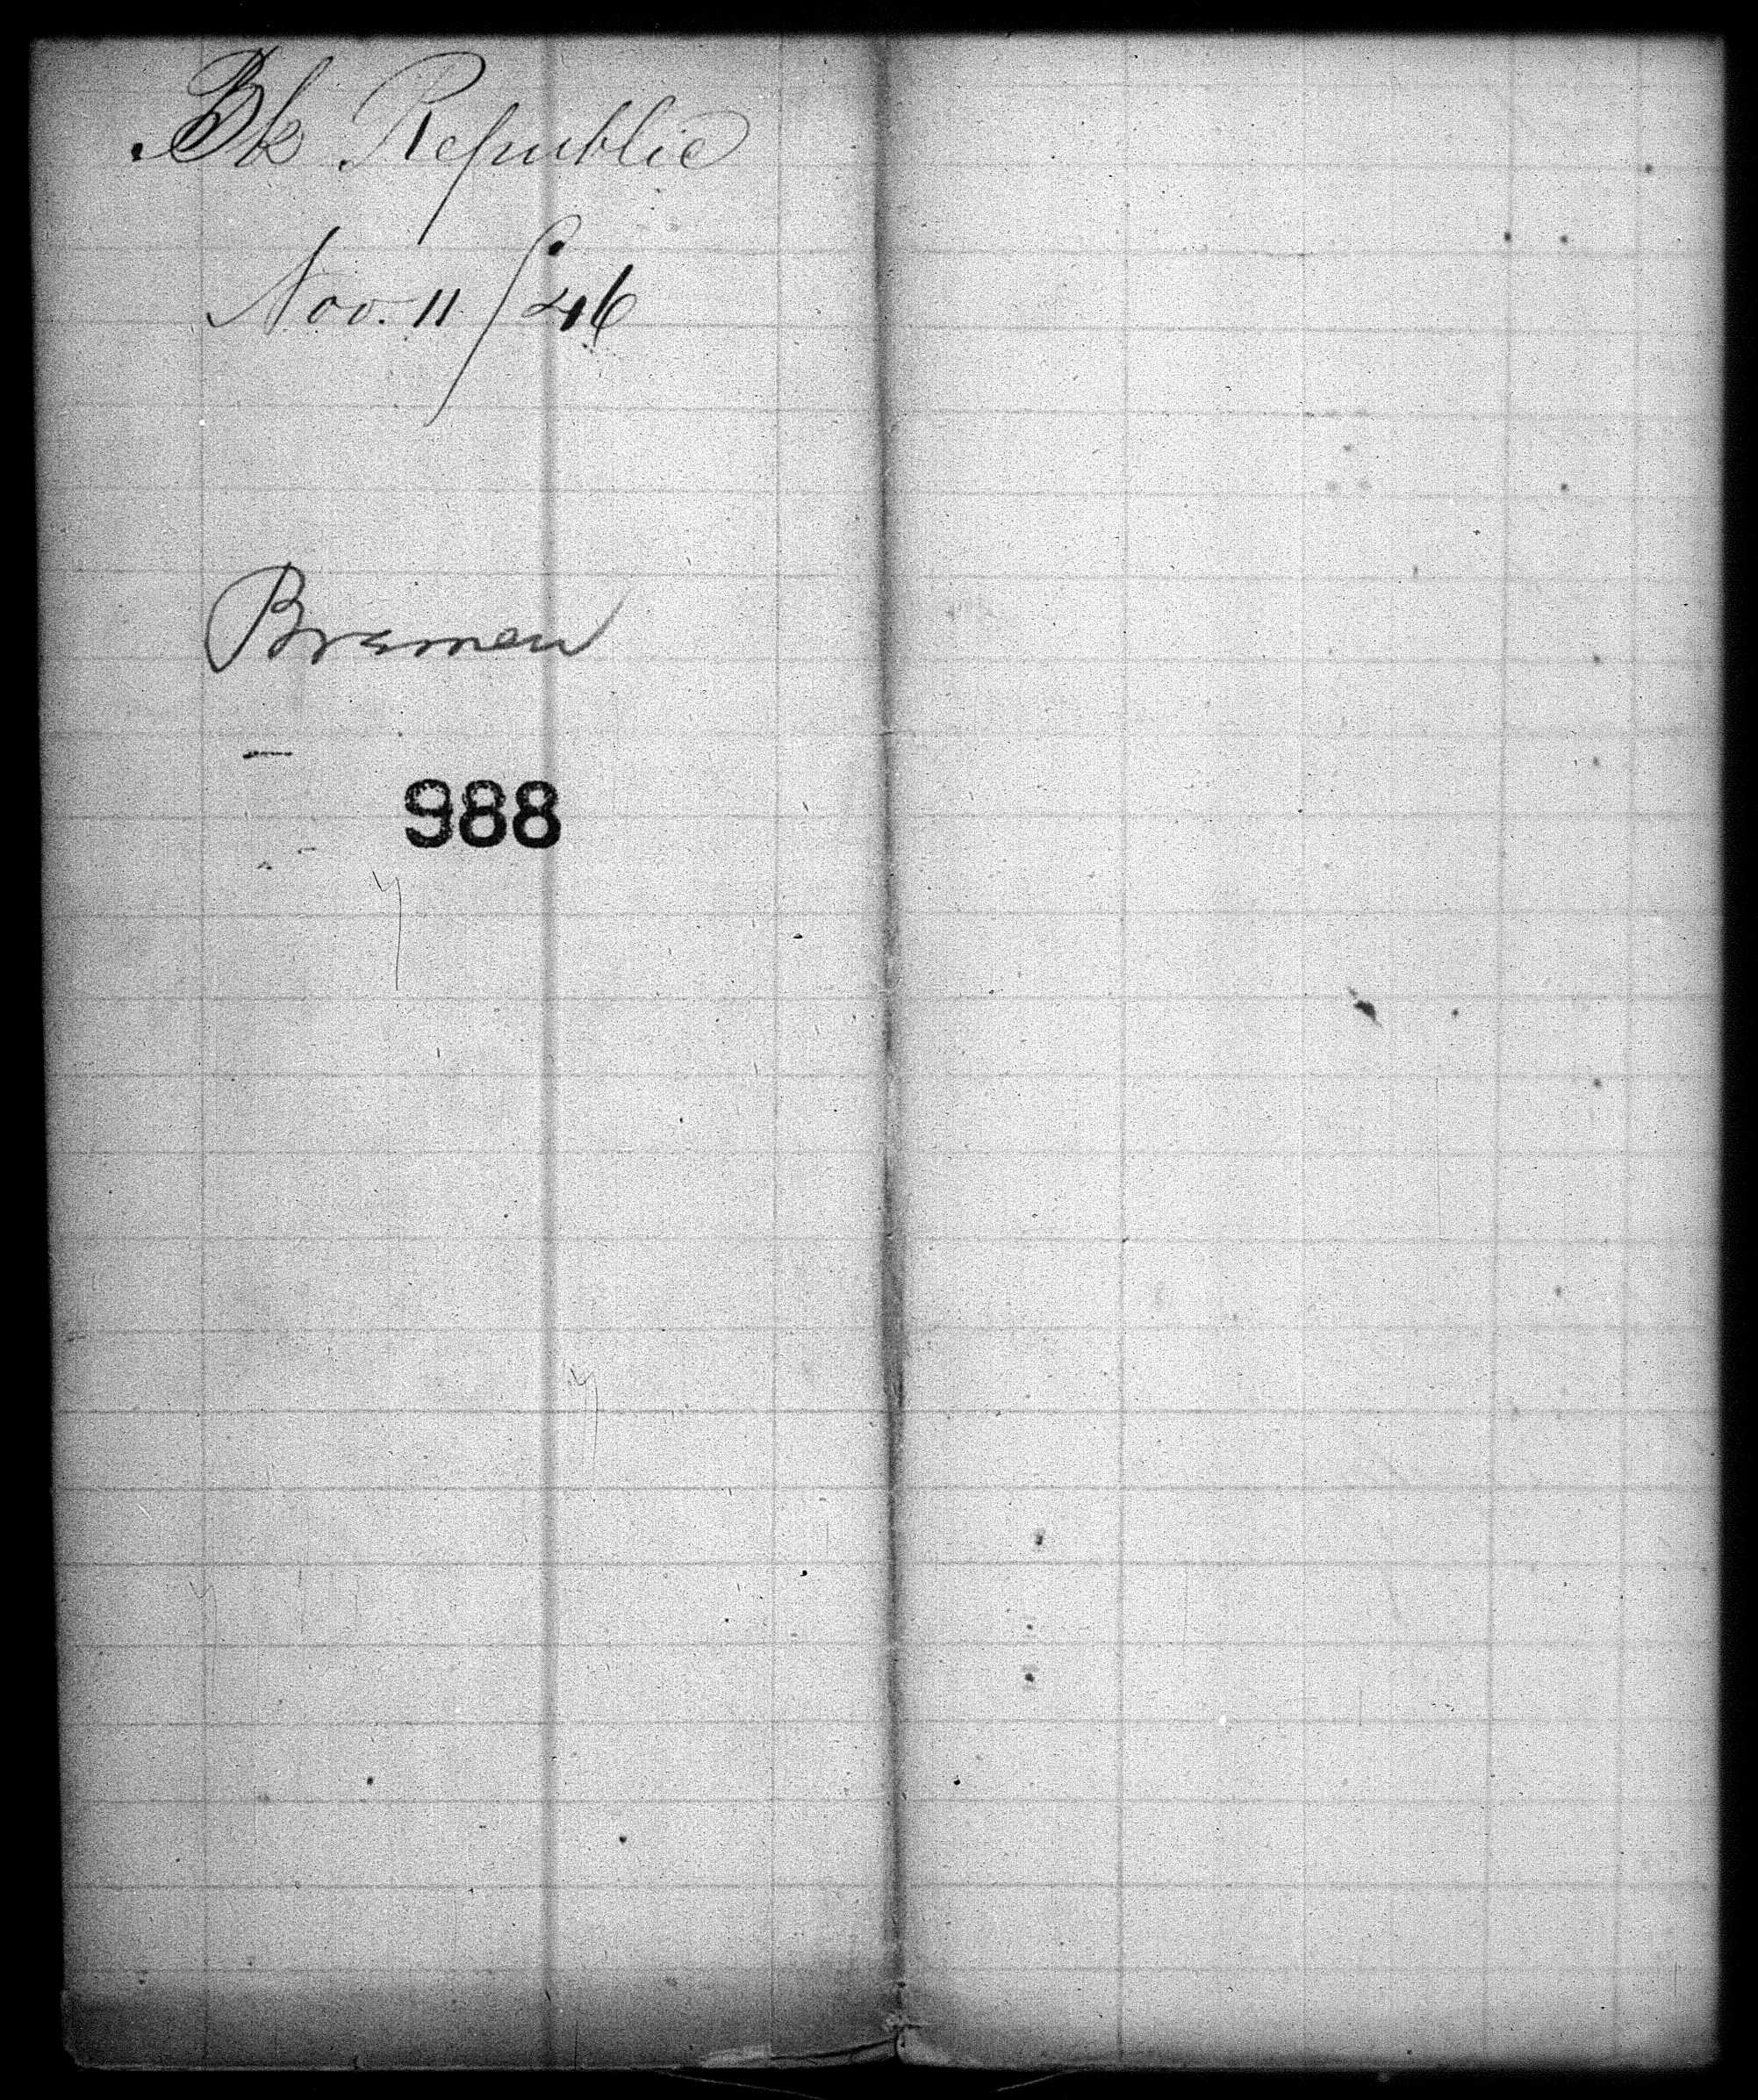 Bk Republic
Nov. 11/46
Bremen
988